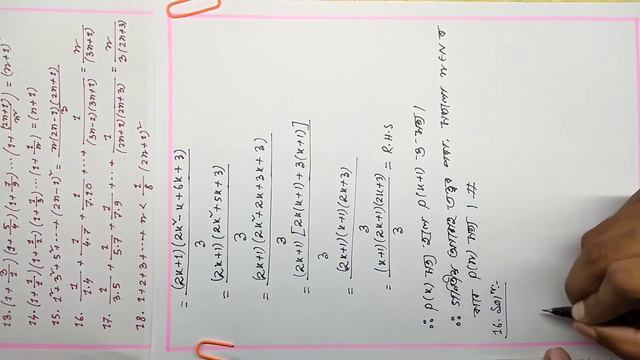 13. (1+3/1)(1+5/4)(1+7/9)...(1+(2n+1)/n²) = (n+1)²
14. (1+1/1)(1+1/2)(1+1/3)...(1+1/n) = (n+1)
15. 1²+3²+5²+...+(2n-1)² = n(2n-1)(2n+1)/3
16. 1/1.4 + 1/4.7 + 1/7.10 +...+ 1/(3n-2)(3n+1) = n/(3n+1)
17. 1/3.5 + 1/5.7 + 1/7.9 +...+ 1/(2n+1)(2n+3) = n/3(2n+3)
18. 1+2+3+...+n < 1/8 (2n+1)²
= (2k+1)(2k²-k+6k+3)/3
= (2k+1)(2k²+5k+3)/3
= (2k+1)(2k²+2k+3k+3)/3
= (2k+1)[2k(k+1)+3(k+1)]/3
= (2k+1)(k+1)(2k+3)/3
= (k+1)(2k+1)(2k+3)/3 = R.H.S
∴ P(k) সত্য হলে P(k+1) ও সত্য।
∴ n∈N
P(n) সত্য। #
16.